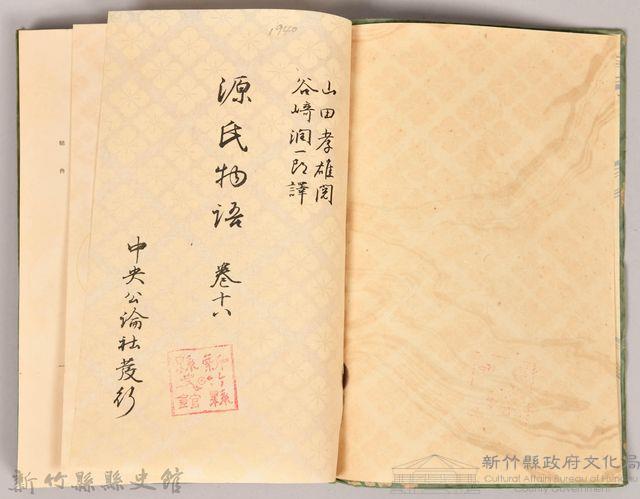 1940
山田孝雄閲
谷崎潤一郎譯
源氏物語 卷十六
中央公論社發行
新竹縣
縣史館
新竹縣縣史館
新竹縣政府文化局
Cultural Affair Bureau of Hsinchu
County Government